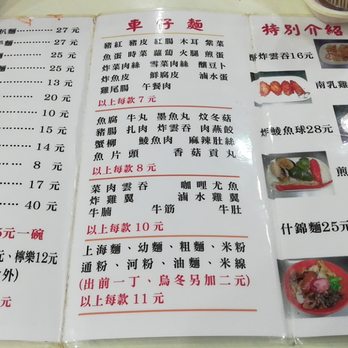 27元
27元
25元
25元
20元
10元
13元
14元
8元
17元
40元
5元一碗
元、檸樂12元
外)
元
車仔麵
豬紅 豬皮 紅腸 木耳 紫菜
魚蛋 時菜 蘿蔔 火腿 煎蛋
炸菜肉絲 雪菜肉絲 釀豆卜
炸魚皮 鮮腐皮 滷水蛋
雞尾腸 午餐肉
以上每款7元
魚腐 牛丸 墨魚丸 炆冬菇
豬腸 扎肉 炸雲吞 肉蒸餃
蟹柳 鯪魚肉 麻辣肚絲
魚片頭 香菇貢丸
以上每款8元
菜肉雲吞 咖哩尤魚
炸雞翼 滷水雞翼
牛腩 牛筋 牛肚
以上每款10元
上海麵、幼麵、粗麵、米粉
通粉、河粉、油麵、米線
(出前一丁、烏冬另加二元)
以上每款11元
特別介紹
炸雲吞16元
南乳雞
炸鯪魚球28元
煎
什錦麵25元